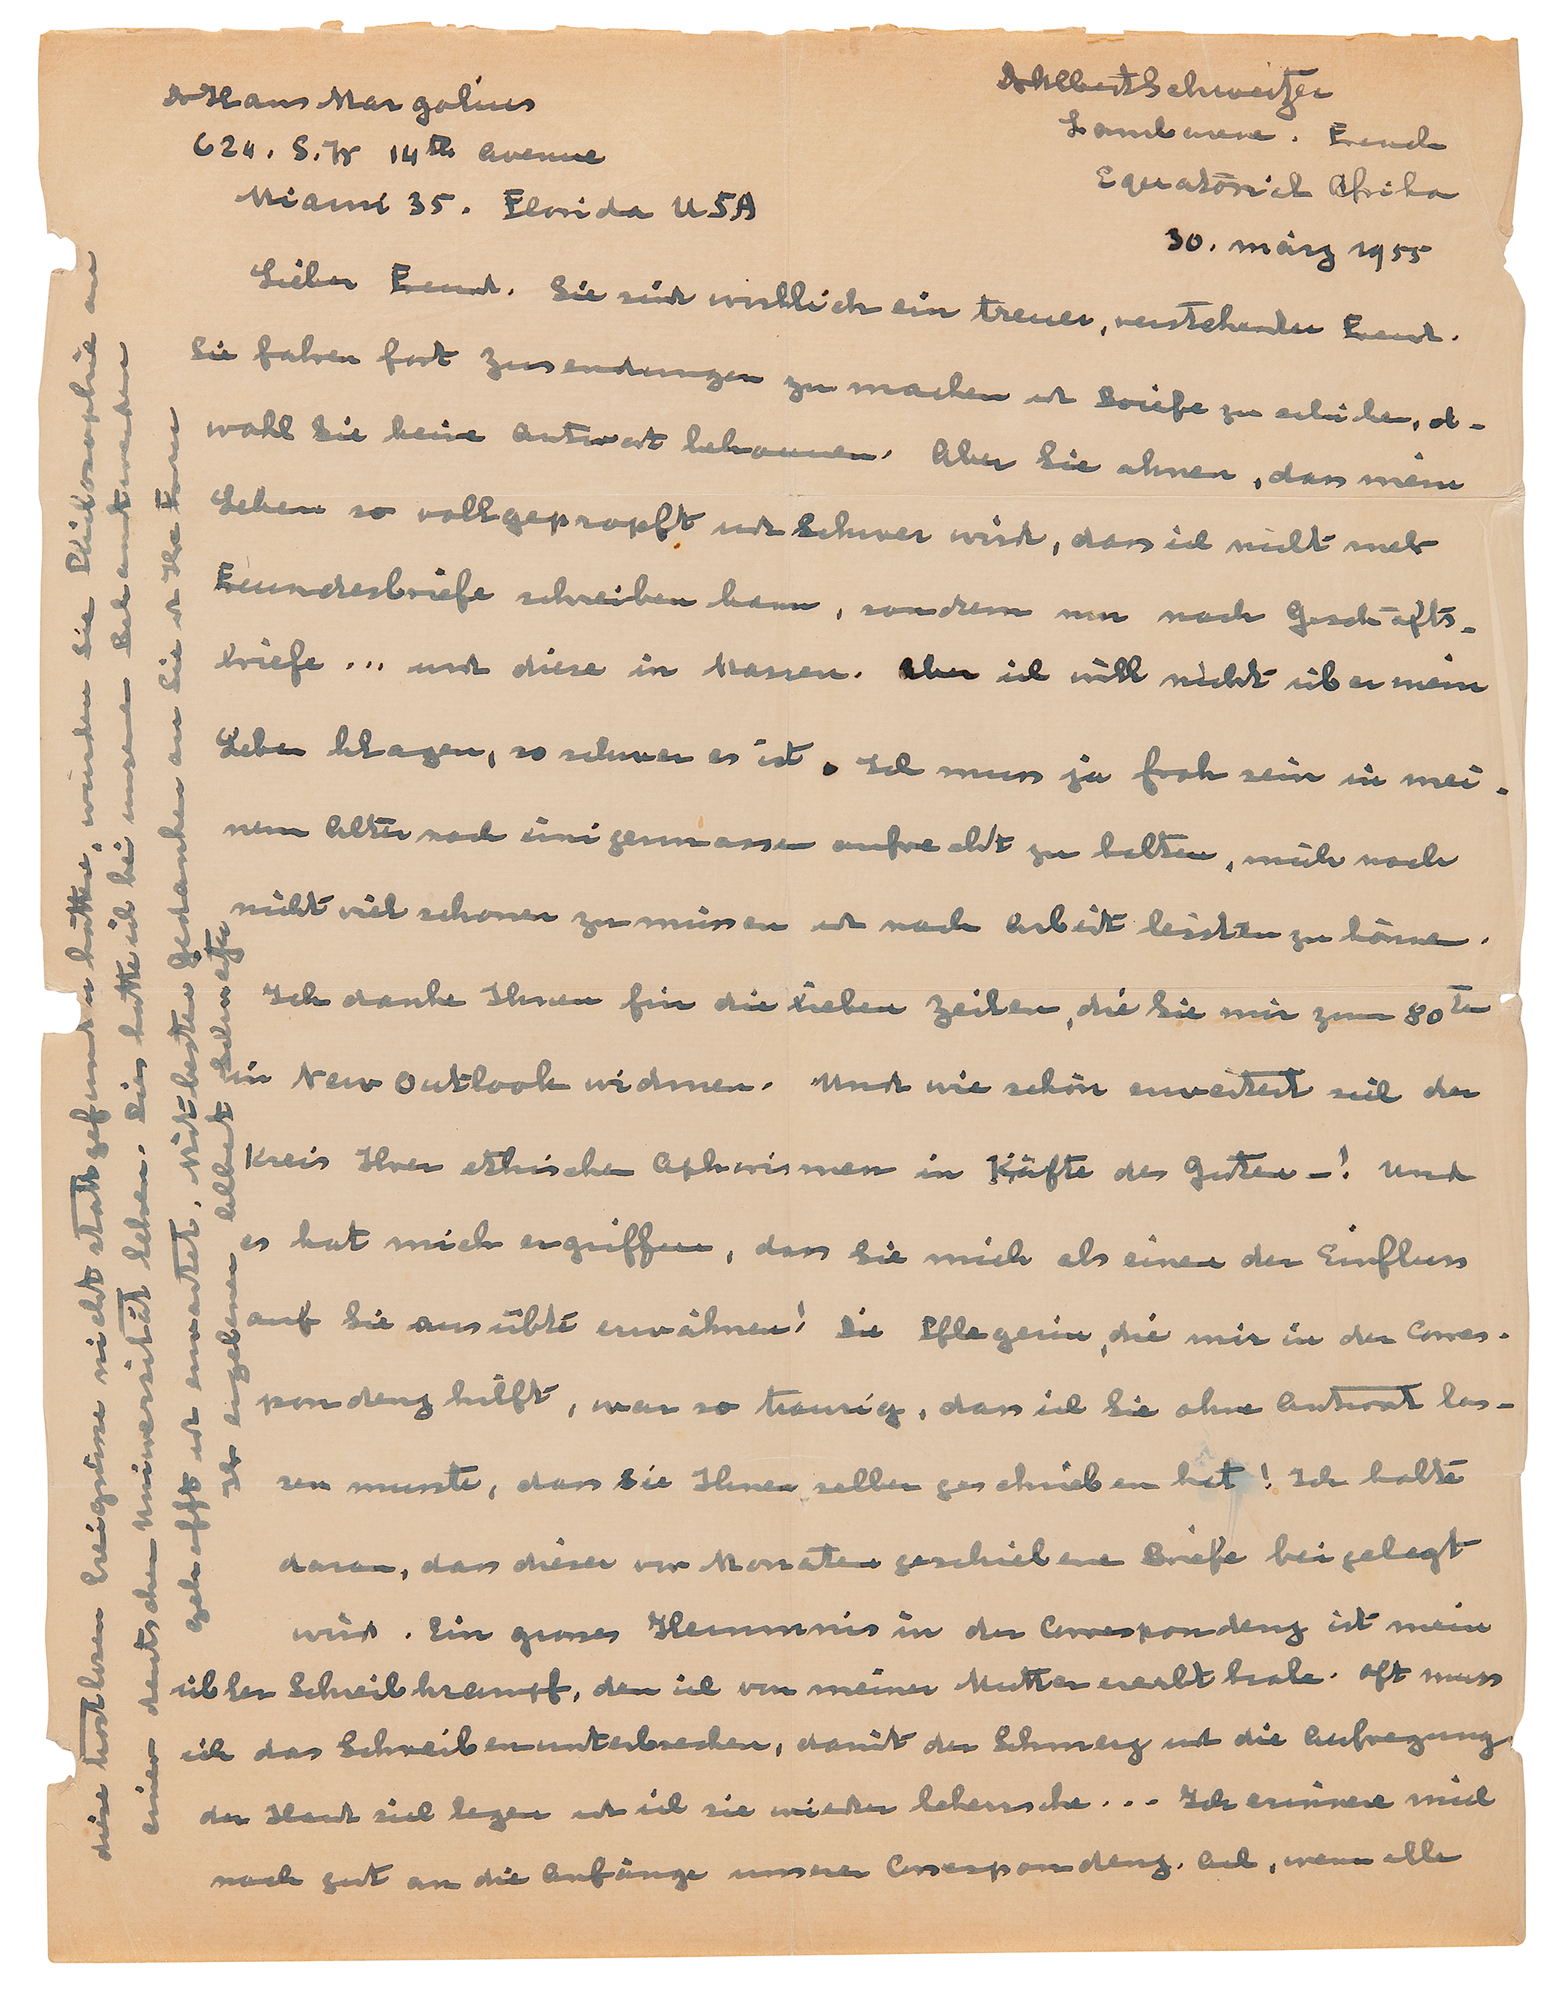 Dr Hans Margolius
624. S.W 14th Avenue
Miami 35. Florida USA
Dr Albert Schweitzer
Lambarene. French
Equatorial Afrika
30. März 1955
Lieber Freund. Sie sind wirklich ein treuer, verstehender Freund.
Sie fahren fort Zusendungen zu machen und Briefe zu schicken, ob-
wohl Sie keine Antwort bekommen. Aber Sie ahnen, dass mein
Leben so vollgepropft und schwer wird, dass ich nicht mehr
Freundesbriefe schreiben kann, sondern nur noch Geschäfts-
briefe ... und diese in Massen. Aber ich will nicht über mein
Leben klagen, so schwer es ist. Ich muss ja froh sein in mei-
nem Alter noch einigermassen aufrecht zu halten, mich noch
nicht viel schonen zu müssen und noch Arbeit leisten zu können.
Ich danke Ihnen für die lieben Zeilen, die Sie mir zum 80ten
in New Outlook widmen. Und wie schön erweitert sich der
Kreis Ihrer ethischen Aphorismen in Kräfte des Guten -! Und
es hat mich ergriffen, dass Sie mich als einen der Einfluss
auf Sie ausübte erwähnen! Die Pflegerin, die mir in der Corres-
pondenz hilft, war so traurig, dass ich Sie ohne Antwort las-
sen musste, dass sie Ihnen selber geschrieben hat! Ich halte
daran, dass dieser vor Monaten geschriebene Briefe beigelegt
wird. Ein grosses Hemmnis in der Correspondenz ist mein
übler Schreibkrampf, den ich von meiner Mutter ererbt habe. Oft muss
ich das Schreiben unterbrechen, damit der Schmerz und die Aufregung
der Hand sich legen und ich sie wieder beherrsche... Ich erinnere mich
noch gut an die Anfänge unserer Correspondenz. Ach, wenn alle
diese trostlosen Ereignisse nicht stattgefunden hätten, würden Sie Philosophie an
einer deutschen Universität lehren. Dies hatte ich bei unserem Bekanntwerden
gehofft und erwartet. Mit besten Gedanken an Sie und Ihre Frau
Ihr ergebener Albert Schweitzer